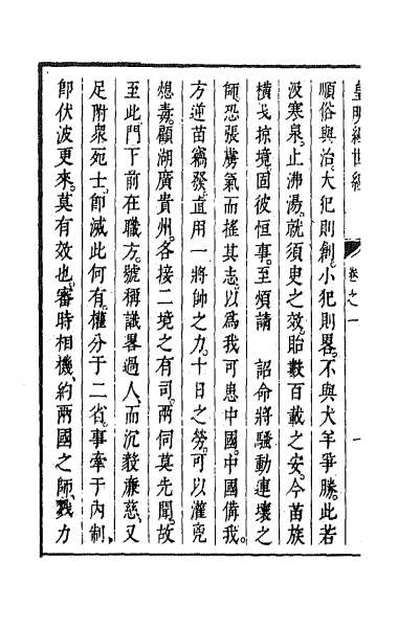 皇明經世編 卷之一 一
順俗與治大犯則創小犯則畧。不與犬羊爭勝。此若
汲寒泉。止沸湯。就須臾之效。貽數百載之安。今苗族
橫戈掠境。固彼恒事。至煩請 詔命將騷動連壤之
師。恐張虜氣而搖其志。以爲我可患中國。中國備我。
方逆苗竊發。直用一將帥之力。十日之勞。可以灌兇
想毒。顧湖廣貴州。各接二境之有司。兩伺莫先聞。故
至此。門下前在職方。號稱識畧過人、而沉毅亷慈、又
足附衆宛士、卽滅此何有。權分于二省。事牽于內制、
卽伏波更來。莫有效也。審時相機、約兩國之師、戮力